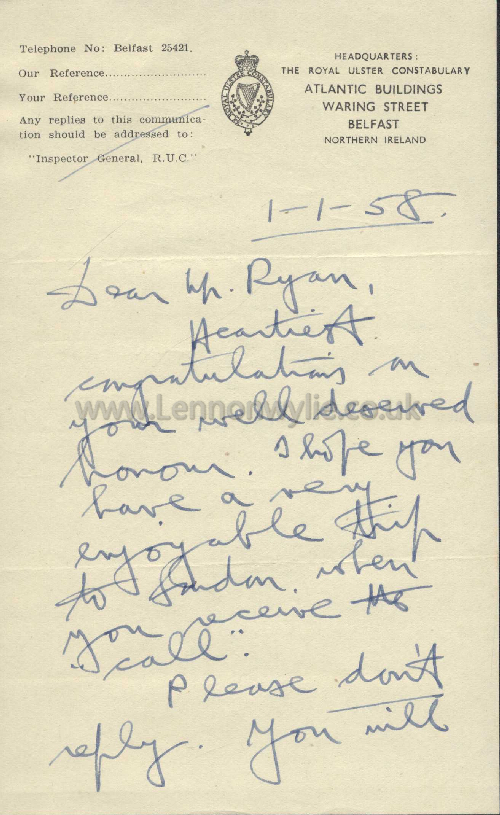 Telephone No: Belfast 25421.
Our Reference..........................
Your Reference.........................
Any replies to this communica-
tion should be addressed to:
"Inspector General, R.U.C."
ROYAL ULSTER CONSTABULARY
HEADQUARTERS:
THE ROYAL ULSTER CONSTABULARY
ATLANTIC BUILDINGS
WARING STREET
BELFAST
NORTHERN IRELAND
1-1-58.
Dear Mr. Ryan,
Heartiest
congratulations on
your well deserved
honour. I hope you
have a very
enjoyable trip
to London when
you receive the
"call".
Please don't
reply. You will
www.Lennonwylie.co.uk